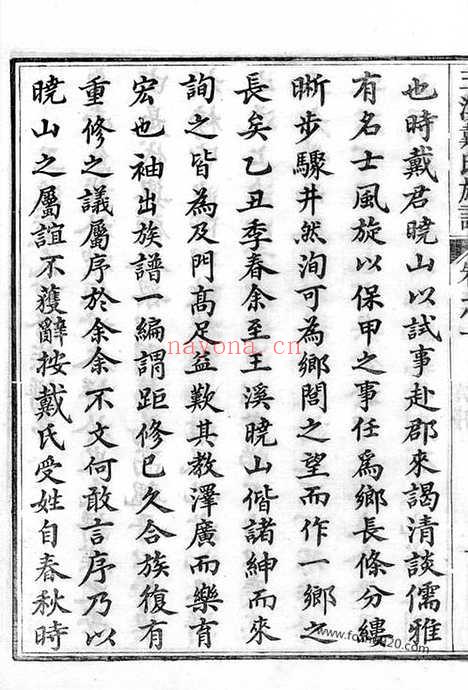 也時戴君曉山以試事赴郡來謁清談儒雅
有名士風旋以保甲之事任爲鄉長條分縷
晰步驟井然洵可為鄉閭之望而作一鄉之
長矣乙丑季春余至王溪曉山偕諸紳而來
詢之皆為及門高足益歎其教澤廣而樂育
宏也袖出族譜一編謂距修已久合族復有
重修之議屬序於余余不文何敢言序乃以
曉山之屬誼不獲辭按戴氏受姓自春秋時
nayona.cn